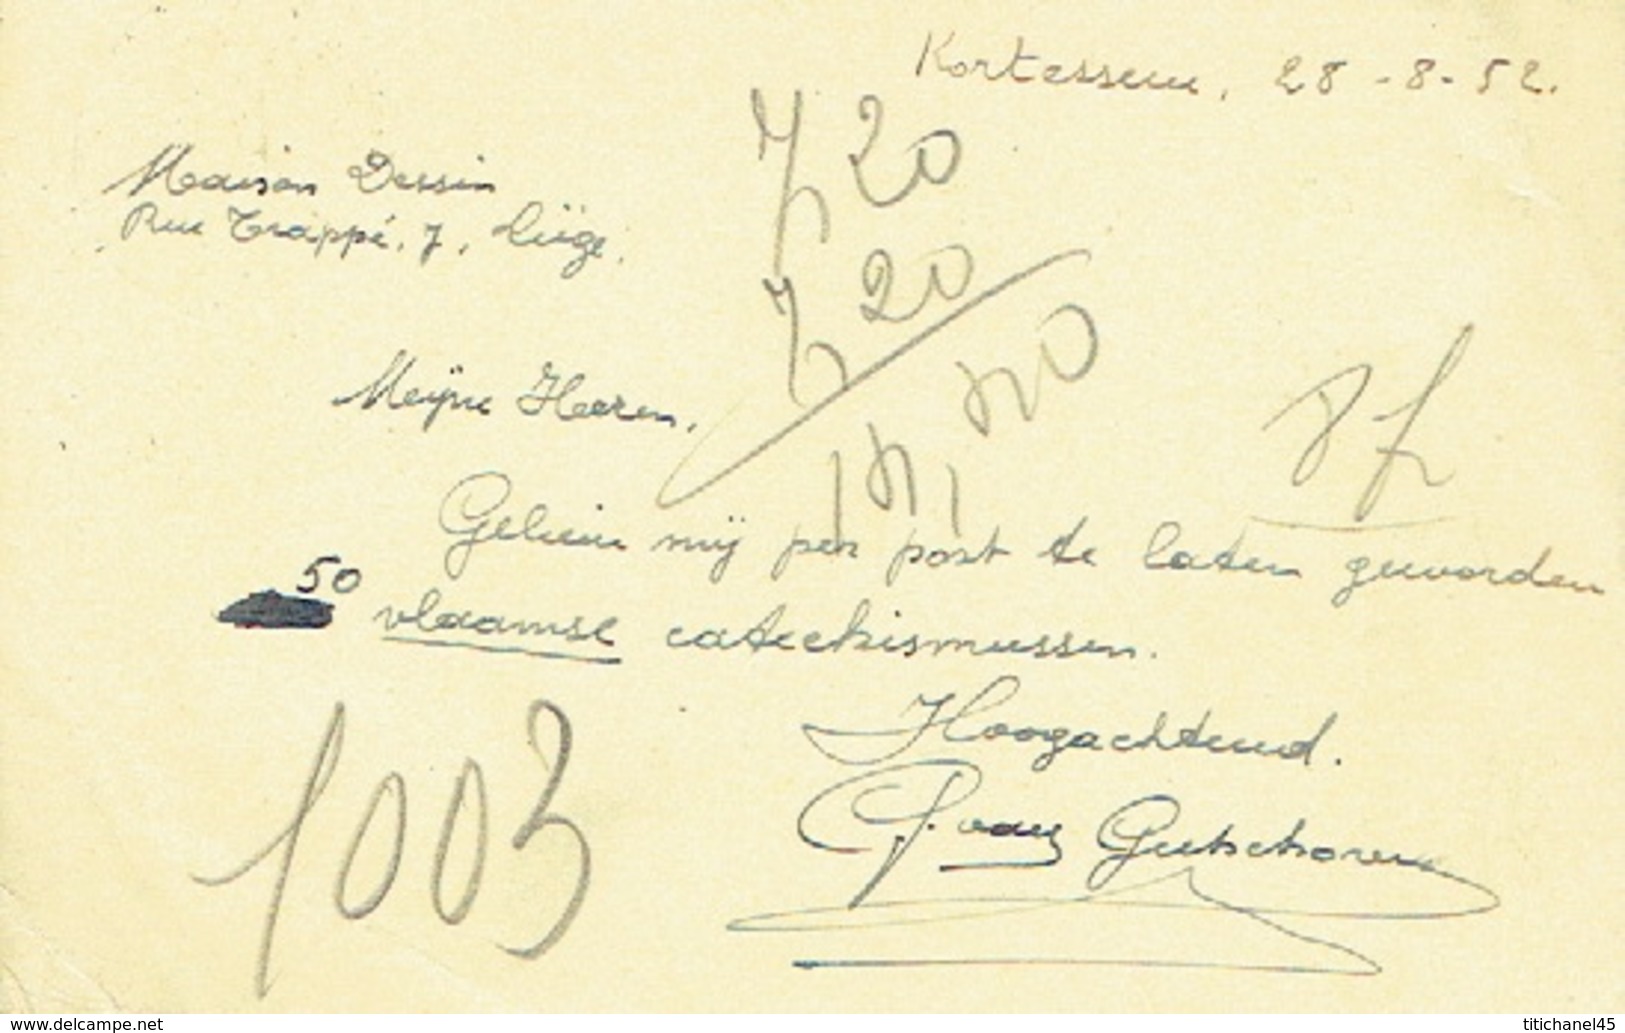 Kortessem, 28-8-52.
7 20
7 20
14,40
Maison Dessin
Rue Trappé, 7, Liège.
Mijne Heeren,
8f
Gelieve mij per post te laten geworden
50 vlaamse catechismussen.
Hoogachtend.
1003
P. van Gutschoven
www.delcampe.net
titichanel45